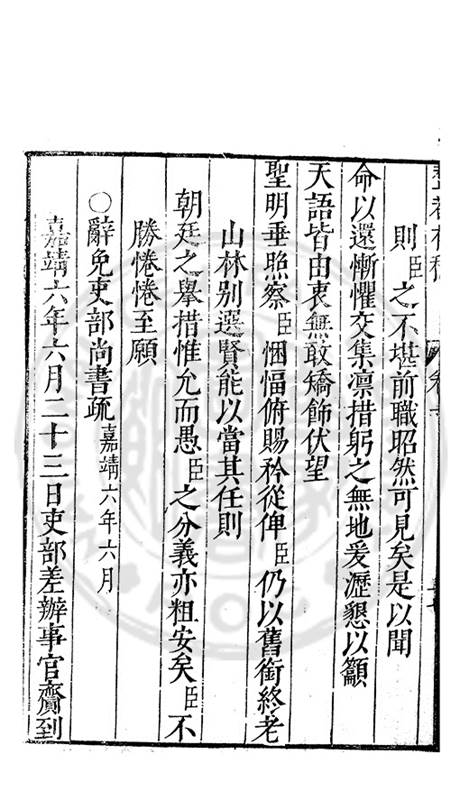 則臣之不堪前職昭然可見矣是以聞
命以還慚懼交集凛措躬之無地爰瀝懇以籲
天語皆由衷無敢矯飾伏望
聖明垂照察臣悃愊俯賜矜從俾臣仍以舊銜終老
山林别選賢能以當其任則
朝廷之舉措惟允而愚臣之分義亦粗安矣臣不
勝惓惓至願
○辭免吏部尚書疏嘉靖六年六月
嘉靖六年六月二十三日吏部差辦事官齎到